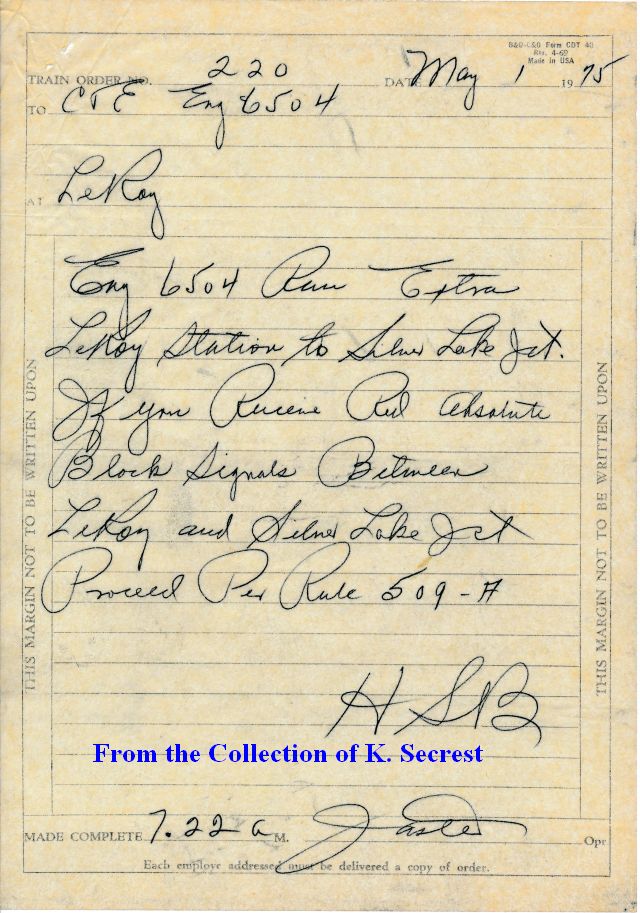 B&O-C&O Form CDT 40
Rev. 4-69
Made in USA
TRAIN ORDER NO. 220 DATE May 1 1975
TO C&E Eng 6504
AT LeRoy
Eng 6504 Run Extra
LeRoy Station to Silver Lake Jct.
If you Receive Red Absolute
Block Signals Between
LeRoy and Silver Lake Jct
Proceed Per Rule 509-A
THIS MARGIN NOT TO BE WRITTEN UPON
THIS MARGIN NOT TO BE WRITTEN UPON
HSB
From the Collection of K. Secrest
MADE COMPLETE 7.22 a M. Opr
Each employe addressed must be delivered a copy of order.